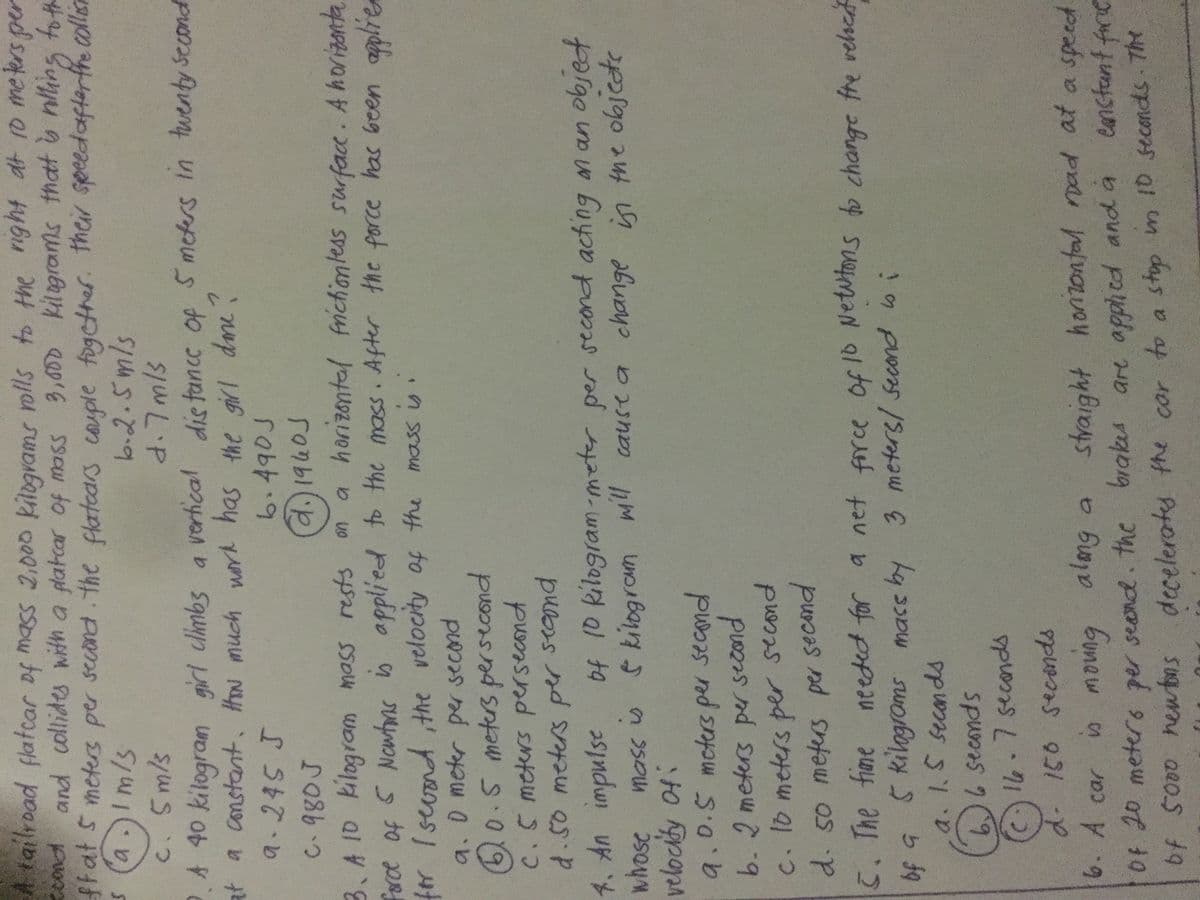 A railroad flatcar of mass 2,000 kilograms rolls to the right at 10 meters per
second and collides with a flatcar of mass 3,000 kilograms that is rolling to th
eft at 5 meters per second. The flatcars couple together. Their speed after the collision
s (a.) 1 m/s b. 2.5 m/s
c. 5 m/s d. 7 m/s
2. A 40 kilogram girl climbs a vertical distance of 5 meters in twenty second
at a constant. How much work has the girl done?
a. 245 J b. 490 J
c. 980 J (d.) 1960 J
3. A 10 kilogram mass rests on a horizontal frictionless surface. A horizonta
force of 5 Newtons is applied to the mass. After the force has been applied
for 1 second, the velocity of the mass is:
a. 0 meter per second
(b) 0.5 meters per second
c. 5 meters per second
d. 50 meters per second
4. An impulse of 10 kilogram-meter per second acting on an object
whose mass is 5 kilogram will cause a change in the objects
velocity of:
a. 0.5 meters per second
b. 2 meters per second
c. 10 meters per second
d. 50 meters per second
5. The time needed for a net force of 10 Newtons to change the velocity
of a 5 kilograms mass by 3 meters/second is:
a. 1.5 seconds
(b.) 6 seconds
(c.) 16.7 seconds
d. 150 seconds
6. A car is moving along a straight horizontal road at a speed
of 20 meters per second. The brakes are applied and a constant force
of 5000 newtons decelerates the car to a stop in 10 seconds. The